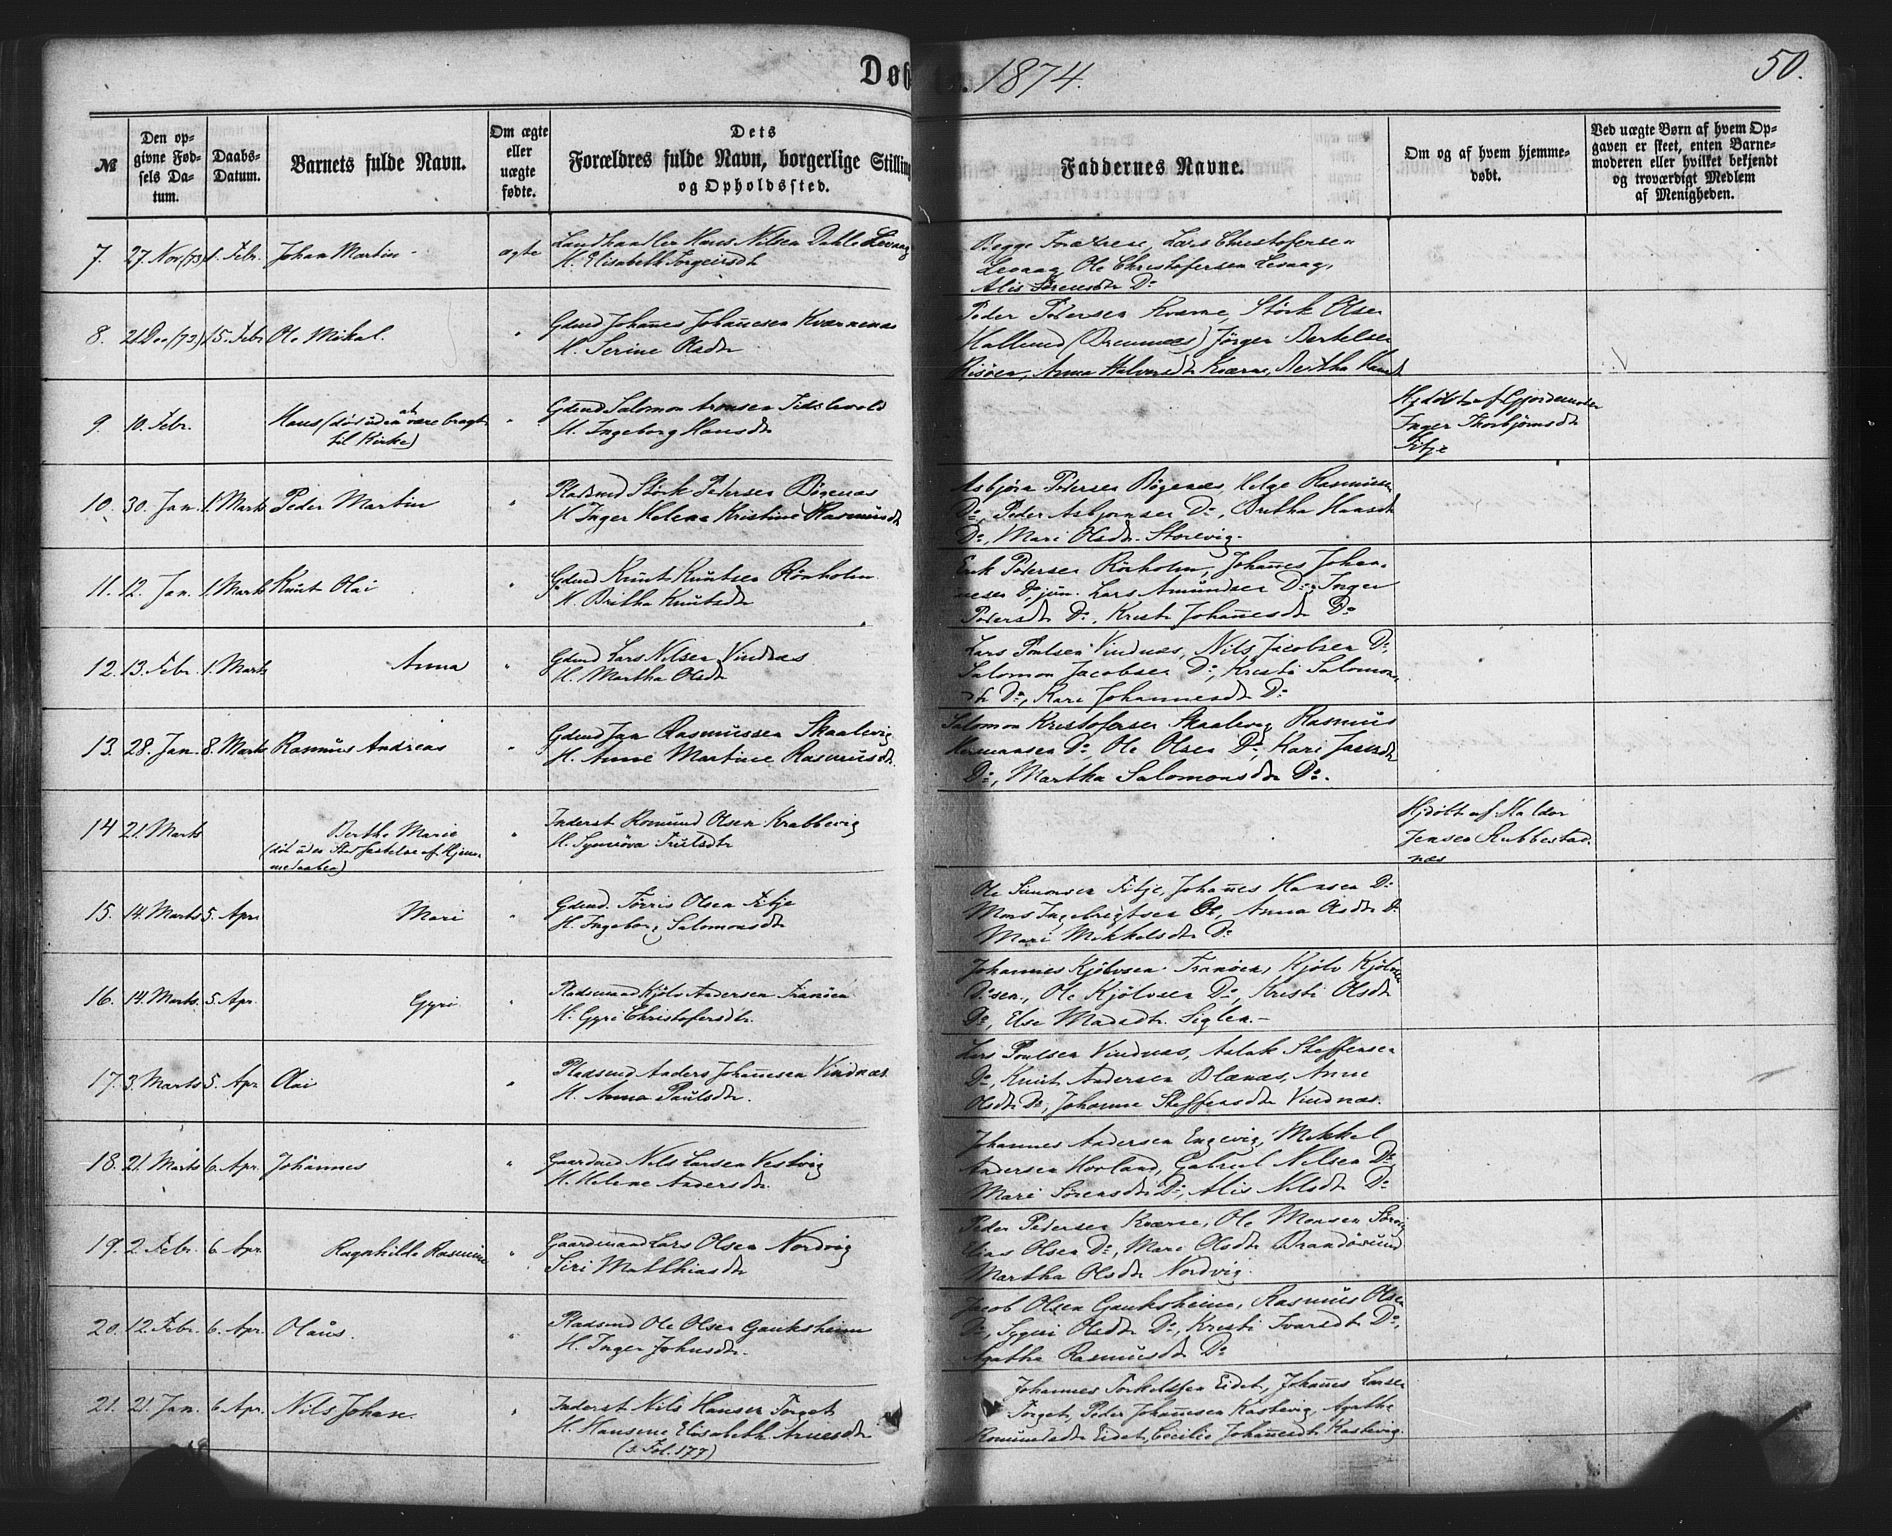 Døb
1874.
50.
№
Den op-
givne Fød-
sels Da-
tum.
Daabs-
Datum.
Barnets fulde Navn.
Om ægte
eller
uægte
fødte.
Dets
Forældres fulde Navn, borgerlige Stilling
og Opholdssted.
Faddernes Navne.
Om og af hvem hjemme-
døbt.
Ved uægte Børn af hvem Op-
gaven er skeet, enten Barne-
moderen eller hvilket bekjendt
og troværdigt Medlem
af Menigheden.
7. 27. Nov (73) 1. Febr. Johan Martin ægte
Landhandler Hans Nilsen Dahle Levaag
H. Elisabeth Torgersdtr
Begge Forældrene, Lars Christofersen
Levaag, Ole Christofersen Levaag,
Alis Sørensdtr Do
8. 21 Dec (73) 15. Febr Ole Mikal. "
Gdmd Johanes Johanesen Kværnenæs
H. Serine Olsdtr
Peder Pedersen Kværne, Størk Olsen
Hallund (Drennæs) Jørgen Bertelsen
Risøen, Anna Halvorsdtr Kværne, Bertha
9. 10. Febr. Hans (død uden at være bragt
til Kirke) "
Gdmd Salomon Aronsen
H. Ingeborg Hansdtr
Hjdøbt af Gjordemoder
Inger Thorbjørnsdtr
Fitje
10. 30. Jan. 1. Marts Peder Martin "
Pladsmd Størk Pedersen Bøgenæs
H. Inger Helene Kristine Rasmusdtr
Asbjørn Pedersen Bøgenæs, Helge Rasmussen
Do, Peder Asbjørnsen Do, Britha Hansdtr
Do, Mari Olsdtr. Storevig.
11. 12. Jan. 1. Marts Knut Olai "
Gdmd Knut Knutsen Rønholm.
H. Britha Knutsdtr
Erik Pedersen Rönholm, Johanes Johan-
nesen Do jun. Lars Amundsen Do, Inger
Pedersdtr Do, Kristi Johanesdtr Do
12. 13. Febr. 1. Marts Anna "
Gdmd Lars Nilsen Vindnæs
H. Martha Olsdtr
Lars Poulsen Vindnæs, Nils Jacobsen Do
Salomon Jacobsen Do, Kristi Salomons-
dtr Do, Kari Johannesdtr Do
13. 28. Jan. 8. Marts Rasmus Andreas "
Gdmd Jan Rasmussen Skaalevig
H. Anne Martine Rasmusdtr.
Salomon Kristofersen Skaalevig Rasmus
Hermansen Do, Ole Olsen Do, Kari Jansdtr
Do, Martha Salomonsdtr Do.
14 21. Marts Berthe Marie
(død uden Stadfæstelse af Hjem-
medaaben) "
Inderst Romund Olsen Krabbevig
H. Synnöva Trulsdtr
Hjdöbt af Haldor
Jensen Rubbestad-
næs
15. 14. Marts 5. Apr. Mari "
Gdmd. Tørris Olsen Fitje
H. Ingeborg Salomonsdtr
Ole Simonsen Fitje, Johanes Hansen Do
Mons Ingebrigtsen Do, Anna Olsdtr Do
Mari Mikkelsdtr Do
16. 14. Marts. 5. Apr. Gyri "
Pladsmand Kjölv Andersen Tranöen
H. Gyri Christofersdtr.
Johannes Kjölvsen Tranöen, Kjölv Kjölv-
sen Do, Ole Kjölvsen Do, Kristi Olsdtr
Do, Else Madsdtr. Siglen.
17. 3. Marts 5. Apr. Olai "
Pladsmd Anders Johanesen Vindnæs
H. Anna Paulsdtr.
Lars Poulsen Vindnæs, Aslak Steffensen
Do, Knut Andersen Blænæs, Anne
Olsdtr Do, Johanne Steffensdtr Vindnæs.
18. 21. Marts 6. Apr. Johannes "
Gaardmd Nils Larsen Vestvig
H. Helene Andersdtr.
Johannes Andersen Engevig, Mikkel
Andersen Hovland, Gabriel Nilsen Do,
Mari Sørensdtr Do, Alis Nilsdtr Do
19. 2. Febr. 6. Apr. Ragnhilde Rasmine "
Gaardmand Lars Olsen Nordvig
Siri Matthiasdtr
Peder Pedersen Kværne, Ole Monsen
Elias Olsen Do, Mari Olsdtr Brandøsund
Martha Olsdtr Nordvig.
20. 12. Febr. 6. Apr. Olaus. "
Pladsmd Ole Olsen Gauksheim
H. Inger Johnsdtr.
Jacob Olsen Gauksheim, Rasmus Olsen
Do, Sygni Olsdtr Do, Kristi Ivarsdtr Do,
Agatha Rasmusdtr Do
21. 21. Jan. 6. Apr. Nils Johan. "
Inderst Nils Hansen Torget
H. Hansine Elisabeth Arnesdtr
(s. Fol. 177)
Johannes Torkeldsen Eidet, Johanes Larsen
Torget, Peder Johanesen Kaskevig, Agathe
Romundsdtr Eidet, Cecilie Johanesdtr Kaskevig.